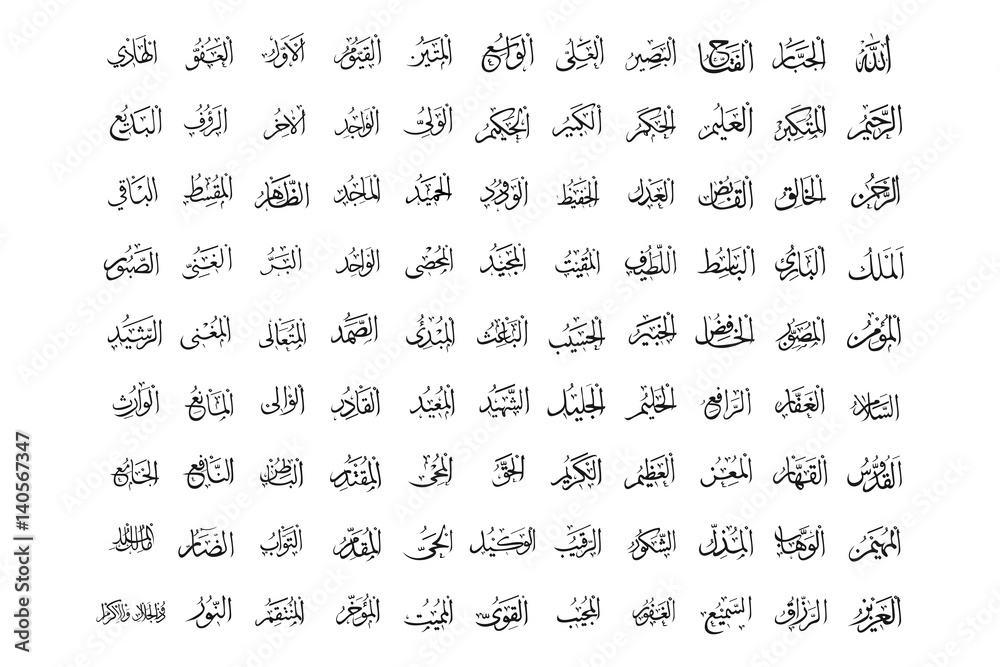 الله الجبار الفتاح البصير العلي الواسع المتين القيوم الأول العفو الهادي
الرحيم المتكبر العليم الحكم الكبير الحكيم الولي الواجد الآخر الرؤوف البديع
الرحمن الخالق القابض العدل الحفيظ الودود الحميد الماجد الظاهر المقسط الباقي
الملك البارئ الباسط اللطيف المقيت المجيد المحصي الواحد البر الغني الصبور
المؤمن المصور الخافض الخبير الحسيب الباعث المبدئ الصمد المتعالي المغني الرشيد
السلام الغفار الرافع الحليم الجليل الشهيد المعيد القادر الوالي المانع الوارث
القدوس القهار المعز العظيم الكريم الحق المحيي المقتدر الباطن النافع الجامع
المهيمن الوهاب المذل الشكور الرقيب الوكيل الحي المقدم التواب الضار مالك الملك
العزيز الرزاق السميع الغفور المجيب القوي المميت المؤخر المنتقم النور ذو الجلال والإكرام
Adobe Stock | #140567347